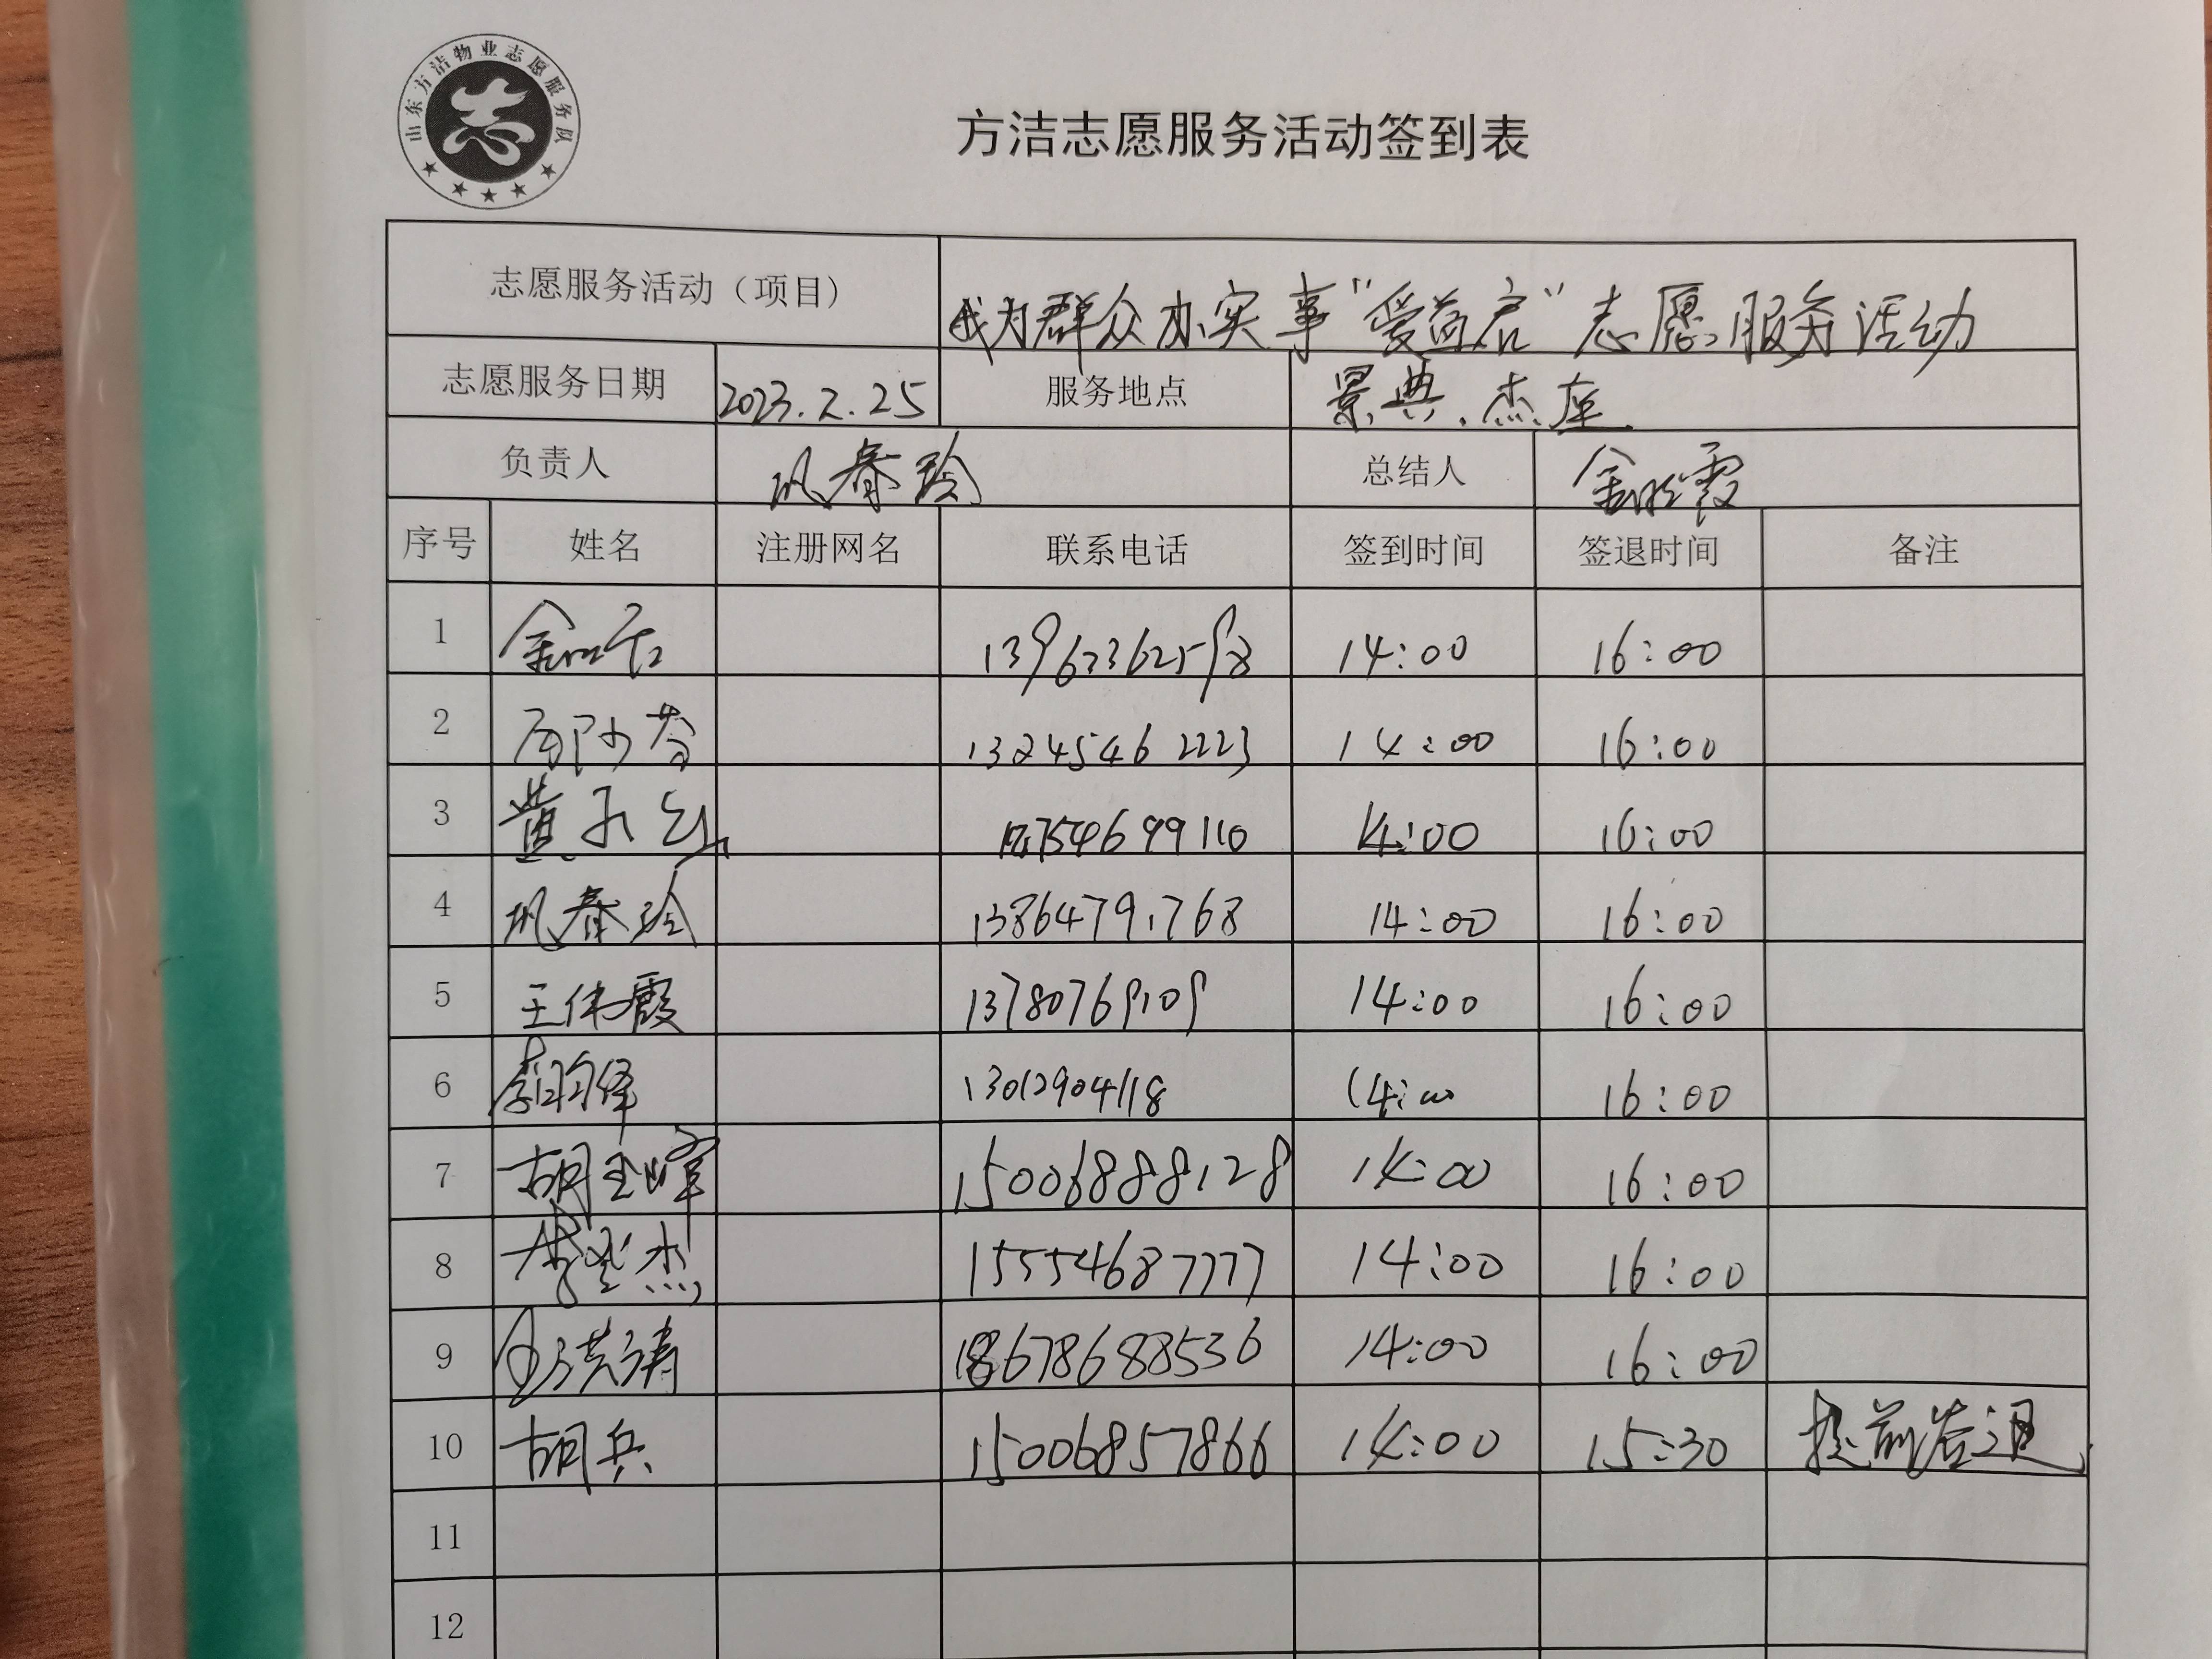 山东方洁物业志愿服务队
方洁志愿服务活动签到表
志愿服务活动（项目） 我为群众办实事“爱益启”志愿服务活动
志愿服务日期 2023.2.25 服务地点 景典.杰座
负责人 巩春玲 总结人 金晓霞
序号 姓名 注册网名 联系电话 签到时间 签退时间 备注
1 13963362598 14:00 16:00
2 13245462223 14:00 16:00
3 14:00 16:00
4 巩春玲 13864791768 14:00 16:00
5 王伟霞 13780769109 14:00 16:00
6 13012904118 14:00 16:00
7 15006888128 14:00 16:00
8 15554687777 14:00 16:00
9 18678688536 14:00 16:00
10 胡兵 15006857866 14:00 15:30 提前签退
11
12